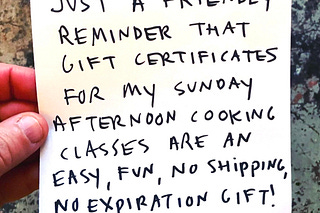 JUST A FRIENDLY
REMINDER THAT
GIFT CERTIFICATES
FOR MY SUNDAY
AFTERNOON COOKING
CLASSES ARE AN
EASY, FUN, NO SHIPPING,
NO EXPIRATION GIFT!